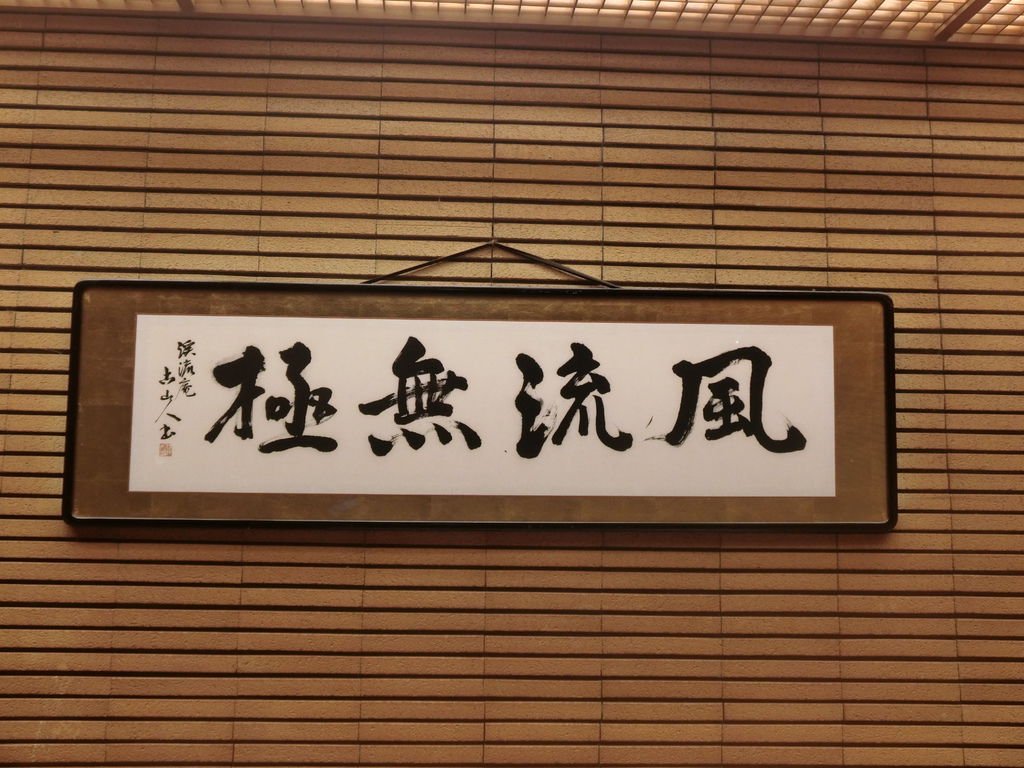 風流無極
渓流庵
古山人書